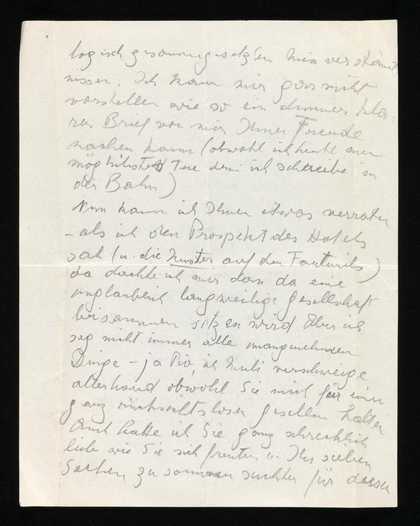 missen. Ich kann mir gar nicht
vorstellen wie so ein dummer
Brief von mir Ihnen Freude
machen kann (obwohl ich heute
ich schreibe in
der Bahn)
Nun kann ich Ihnen etwas verraten
– als ich den Prospekt des Hotels
sah (u. die Muster auf den Fauteuils)
da dachte ich mir dass da eine
unglaublich langweilige Gesellschaft
beisammen sitzen wird Aber ich
sag nicht immer alle unangenehmen
Dinge – ja Pio ich verschweige
allerhand obwohl Sie mich für einen
ganz rücksichtslosen Gesellen halten
Auch hatte ich Sie ganz schrecklich
lieb wie Sie sich freuten u. Ihre sieben
Sachen zusammen suchten für diese